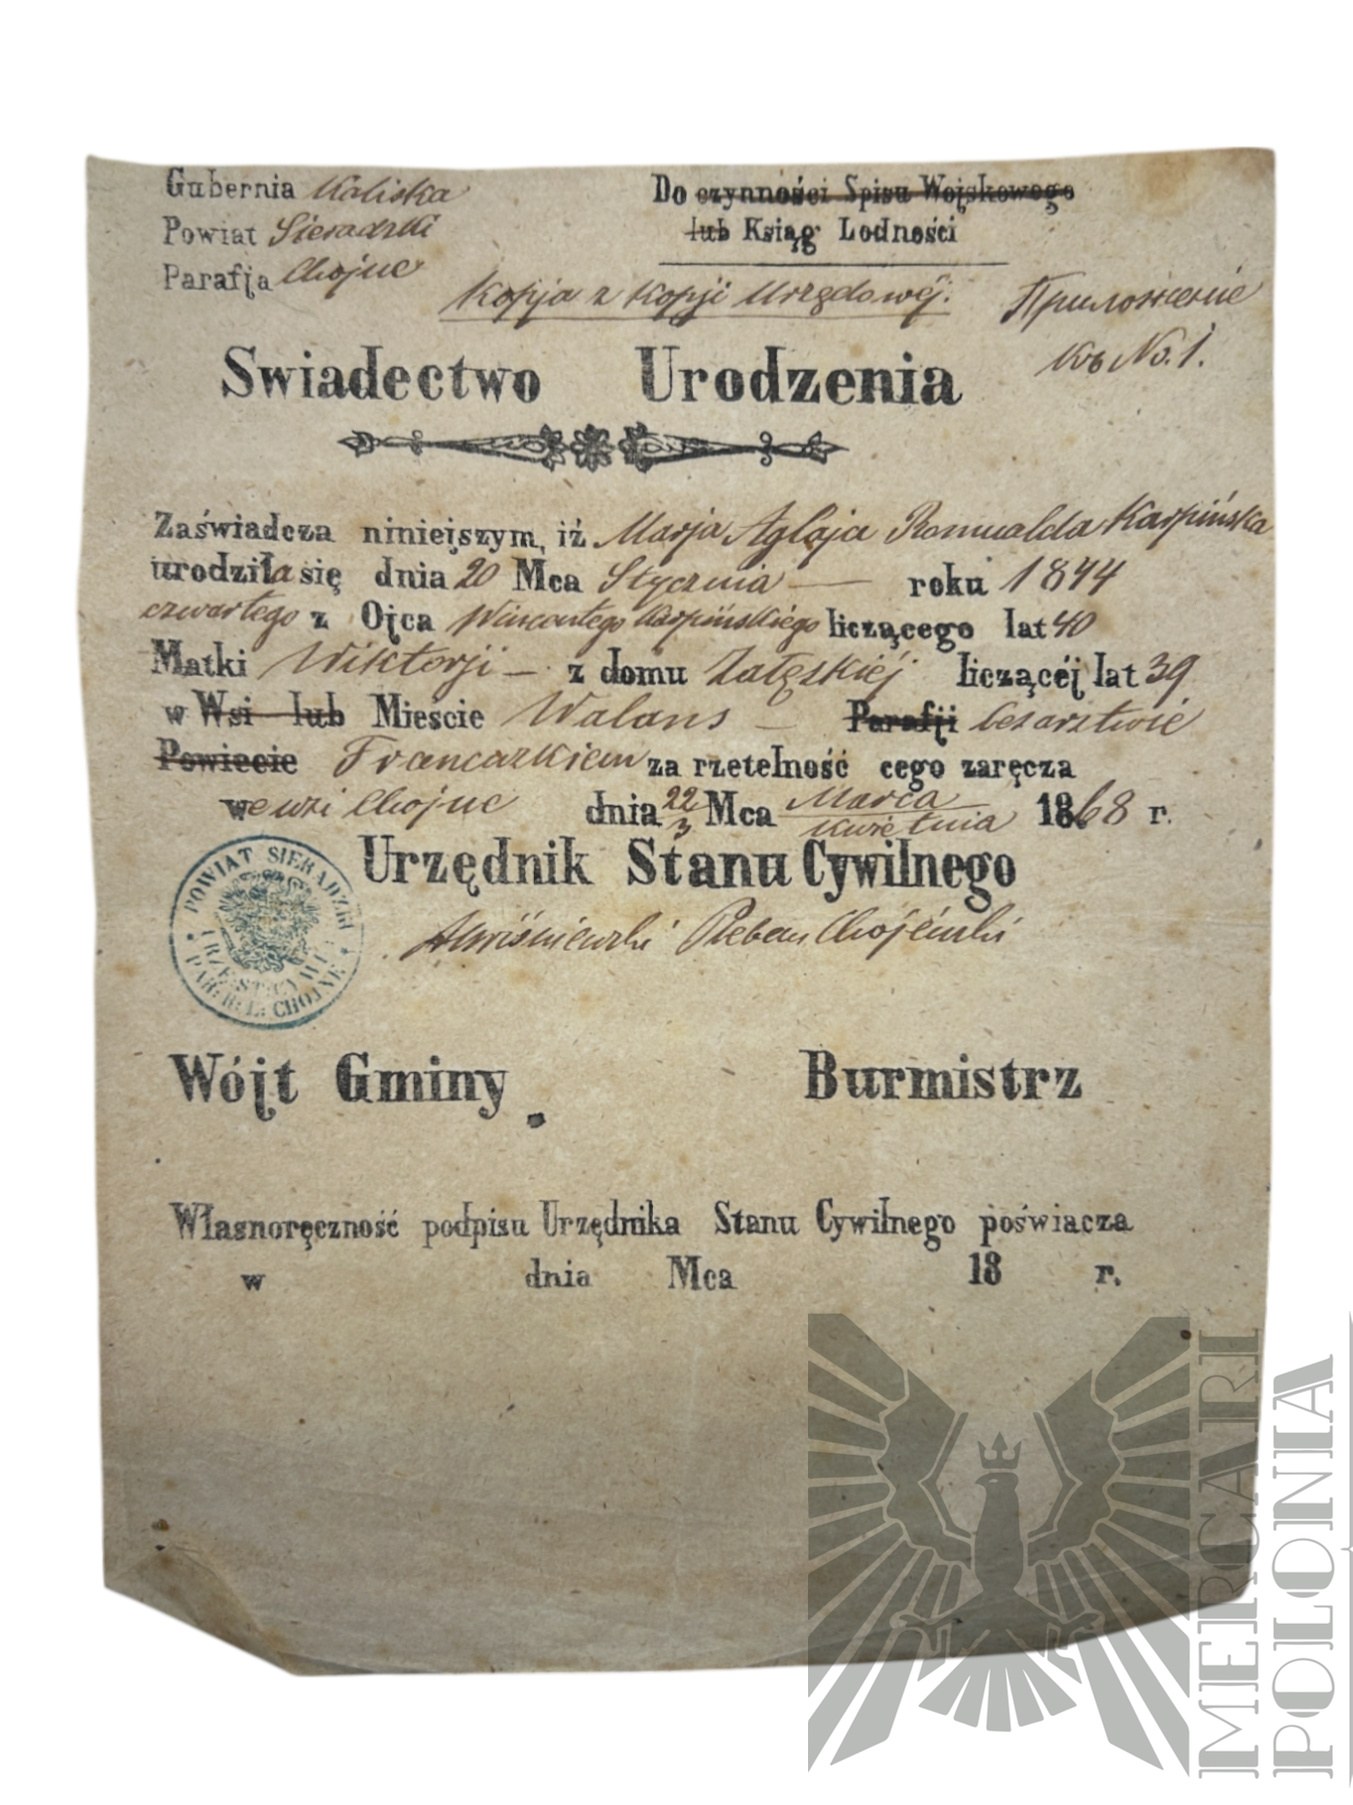 Gubernia Kaliska
Powiat Sieradzki
Parafja Chojne
Do czynności Spisu Wojskowego
lub Ksiąg Lodności
Kopja z Kopji Urzędowéj.
Приложение
къ No. 1.
Swiadectwo Urodzenia
Zaświadcza niniejszym, iż Marja Aglaja Romualda Karpińska
urodziła się dnia 20 Mca Stycznia — roku 1844
czwartego z Ojca Wincentego Karpińskiego liczącego lat 40
Matki Wiktorji — z domu Załęskiéj liczącéj lat 39
w Wsi lub Miescie Walans — Parafji Cesarstwie
Powiecie Francuzkiem za rzetelność cego zaręcza
we wsi Chojne dnia 22/3 Mca Marca/Kwietnia 1868 r.
Urzędnik Stanu Cywilnego
AWiśniewski Pleban Chojeński
POWIAT SIERADZKI
URZ: STA: CYWIL:
PAR: R: L: CHOJNE
Wójt Gminy
Burmistrz
Własnoręczność podpisu Urzędnika Stanu Cywilnego poświacza
w dnia Mca 18 r.
MERCARI
POLONIA